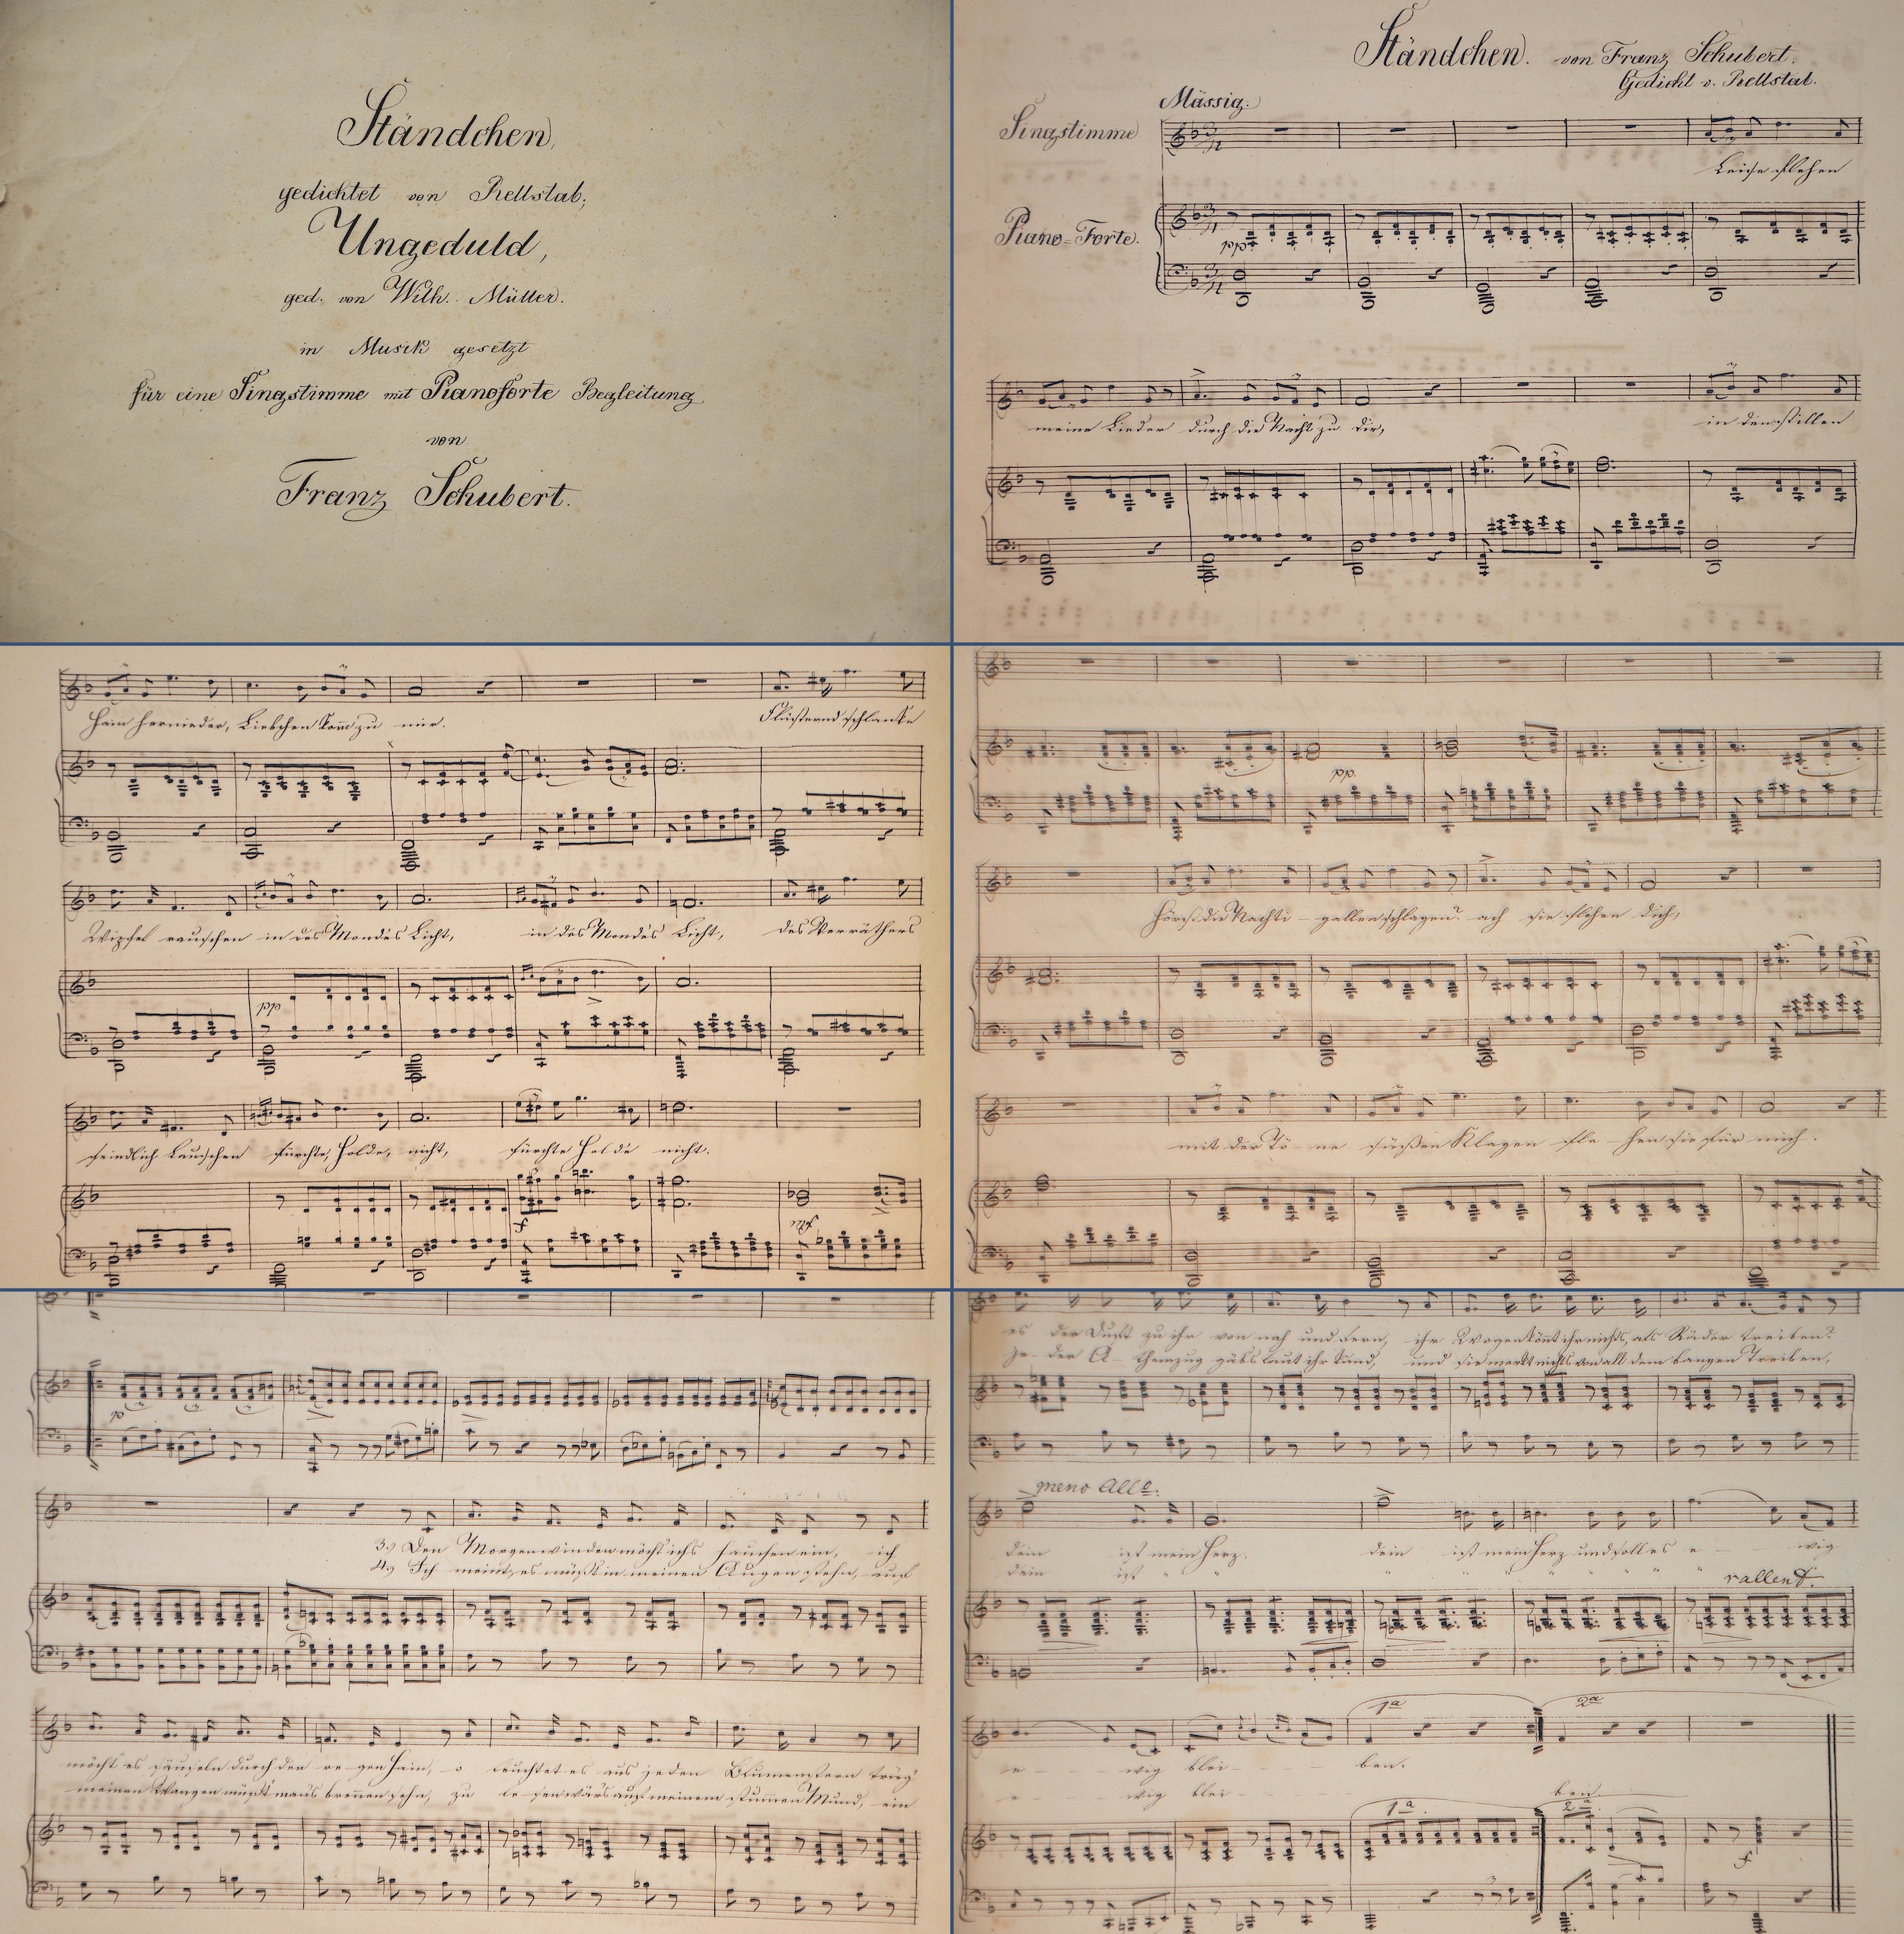 Ständchen,
gedichtet von Rellstab;
Ungeduld,
ged. von Wilh. Müller.
in Musik gesetzt
für eine Singstimme mit Pianoforte Begleitung
von
Franz Schubert.
Ständchen. von Franz Schubert.
Gedicht v. Rellstab.
Mässig.
Singstimme
Leise flehen
Piano-Forte.
pp
meine Lieder durch die Nacht zu dir,
in den stillen
Hain hernieder, Liebchen kom̅ zu mir.
Flüsternd schlanke
Wipfel rauschen in des Mondes Licht,
in des Mondes Licht,
des Verräthers
pp
feindlich Lauschen fürchte, Holde, nicht,
fürchte Holde nicht.
f
pp.
Hörst die Nachti - gallen schlagen? ach sie flehen dich,
mit der Tö - ne süßen Klagen fle - hen sie für mich.
p
3.) Den Morgenwinden möcht' ichs hauchen ein, ich
4.) Ich meint, es müßt in meinen Augen stehn, auf
möcht es säuseln durch den re - gen Hain, o leuchtet es aus jedem Blumenstern trüg'
meinen Wangen müßt mans bren̅en sehn, zu le - sen wärs auf meinem stum̅en Mund, ein
es der Duft zu ihr von nah und fern, ihr Wogen kön̅t ihr nichts, als Räder treiben?
je - der A - themzug gäbs laut ihr kund, und sie merkt nichts von all dem bangen Treiben,
meno Allo.
dein ist mein Herz. dein ist mein Herz und soll es e - - wig
dein ist " " " " " " " " "
rallent.
1a 2a
e - - - wig blei - - - ben.
e - - - wig blei - - - ben.
1a. 2a
f